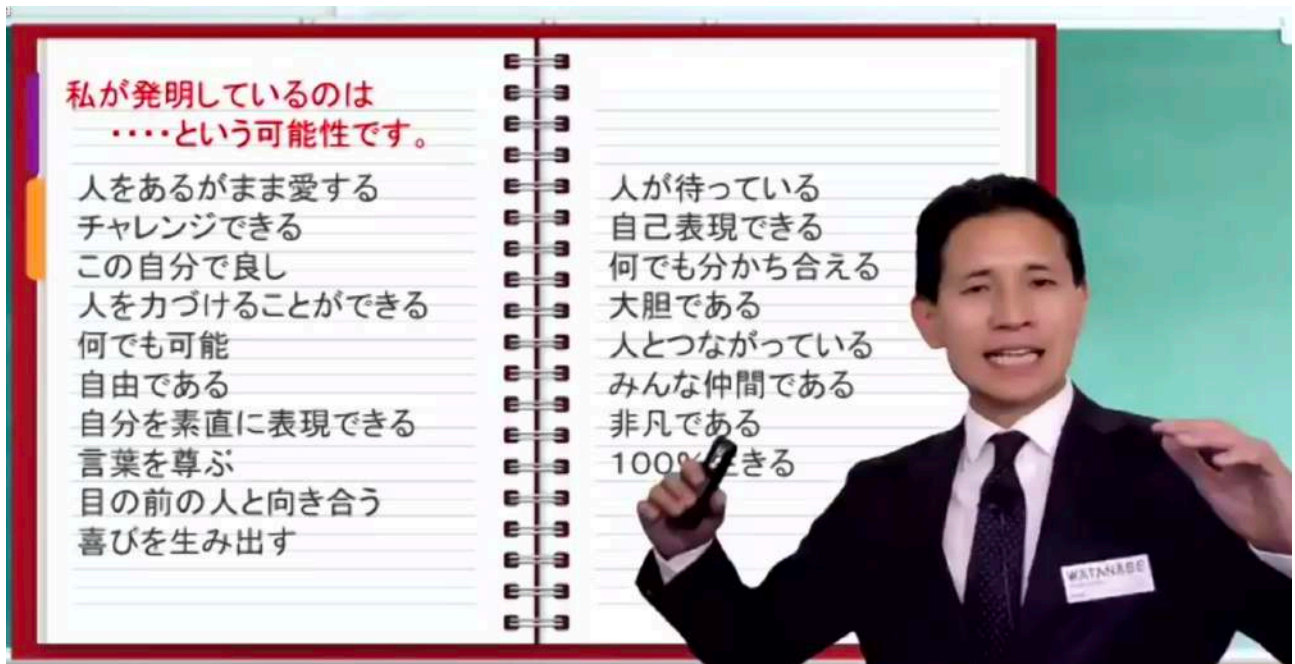 私が発明しているのは
････という可能性です。
人をあるがまま愛する
チャレンジできる
この自分で良し
人を力づけることができる
何でも可能
自由である
自分を素直に表現できる
言葉を尊ぶ
目の前の人と向き合う
喜びを生み出す
人が待っている
自己表現できる
何でも分かち合える
大胆である
人とつながっている
みんな仲間である
非凡である
100%生きる
WATANABE